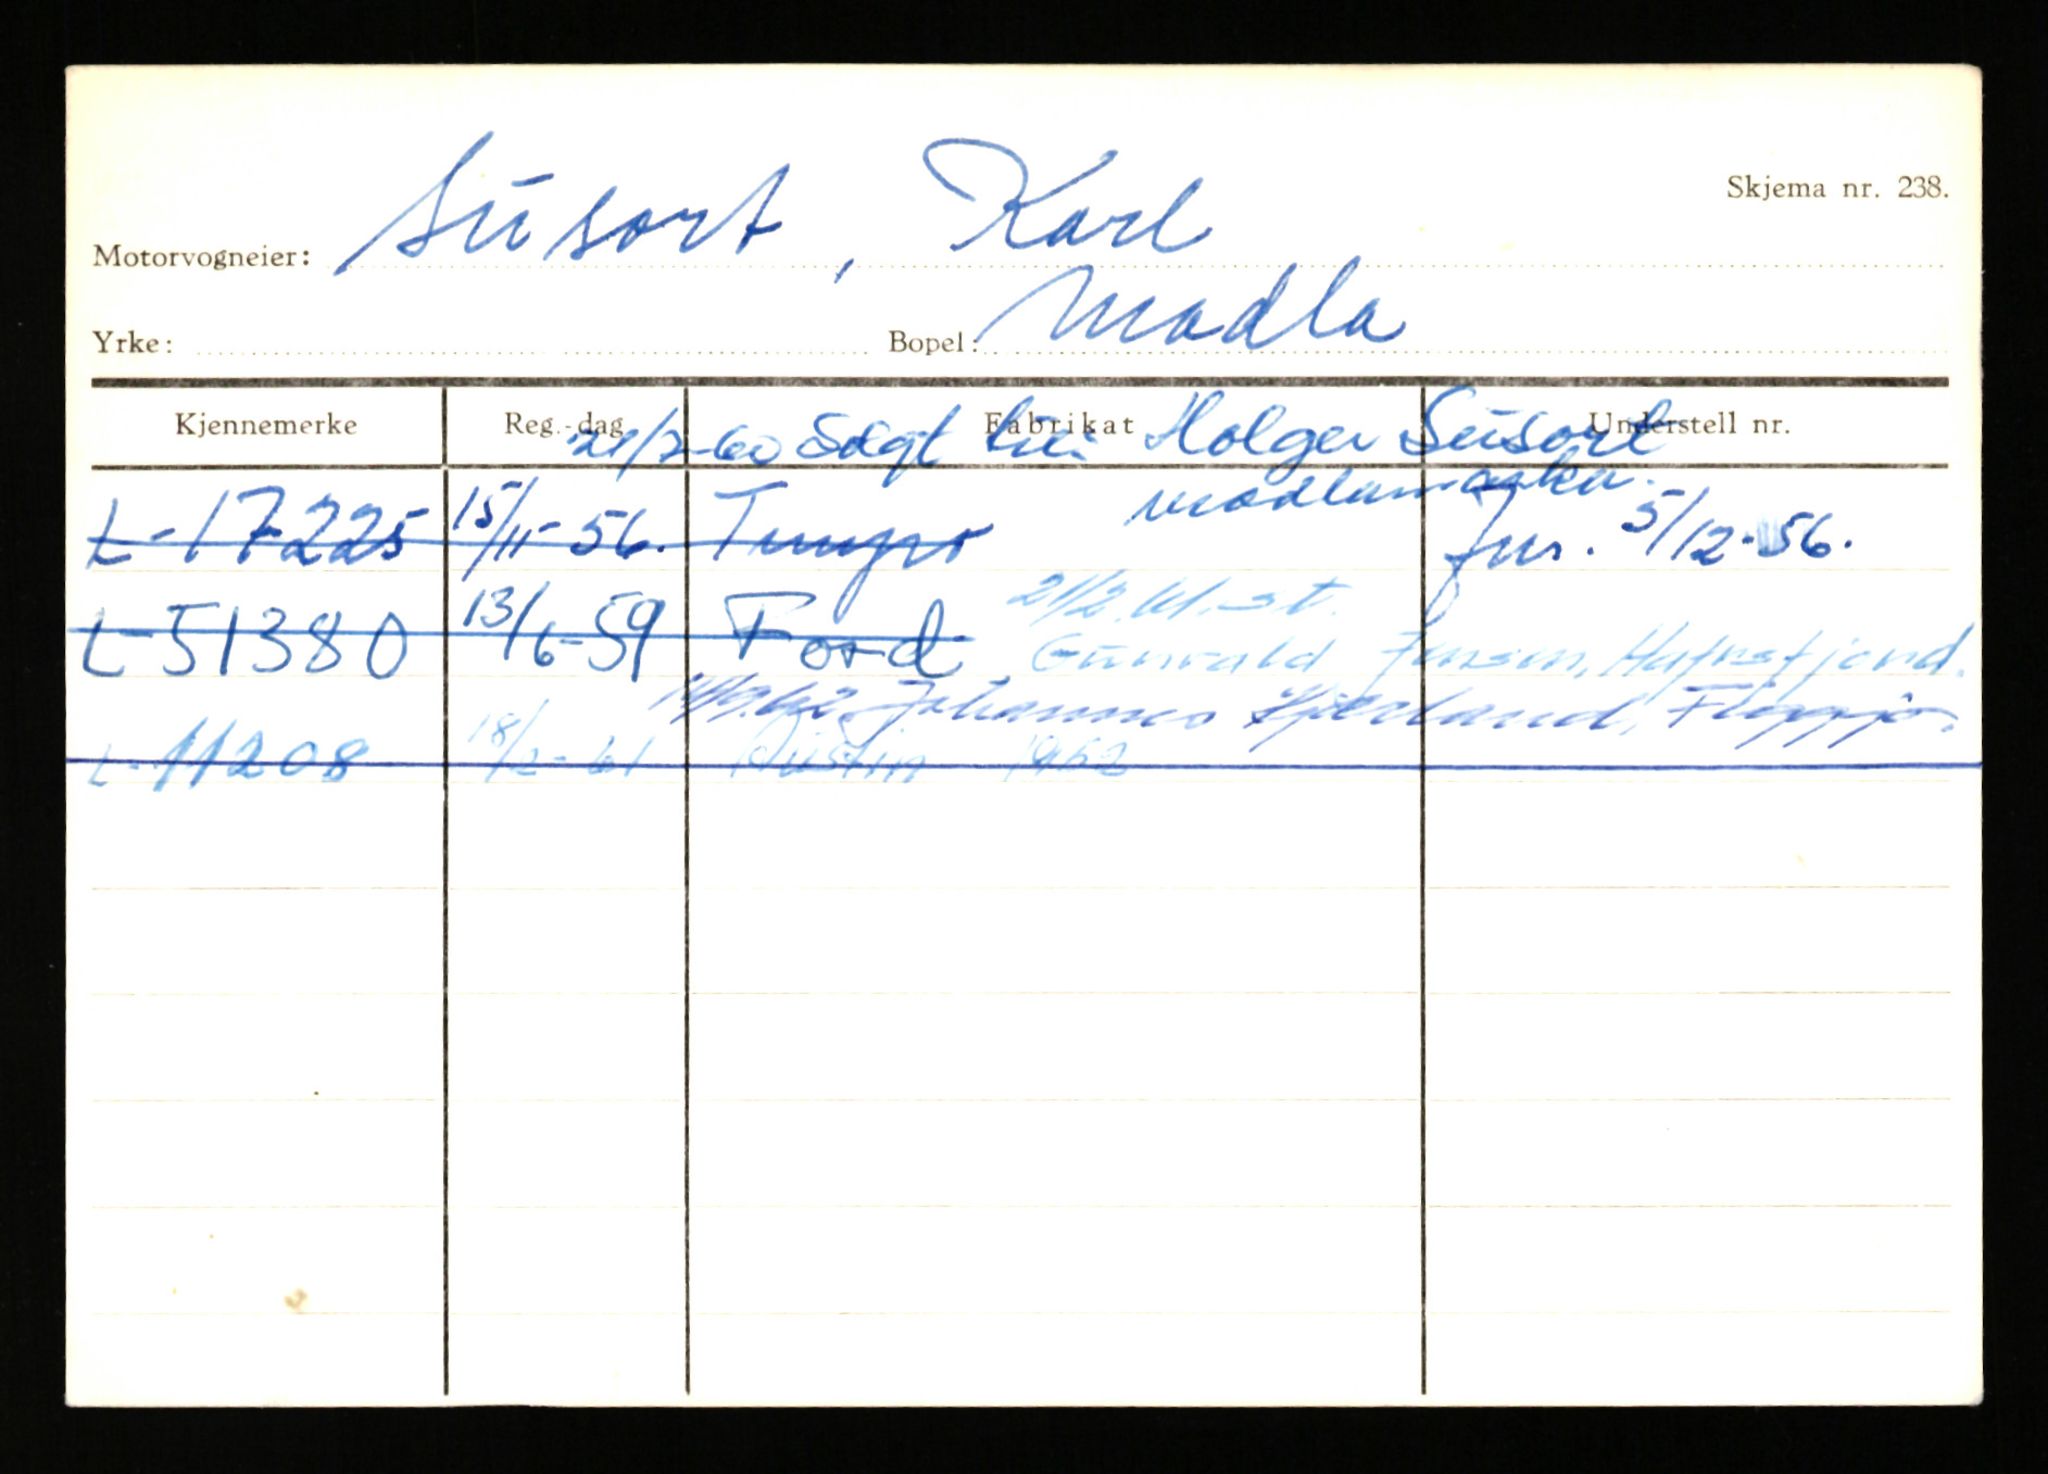 Skjema nr. 238.
Motorvogneier: Susort, Karl
Yrke: Bopel: Madla
Kjennemerke Reg.-dag Fabrikat Understell nr.
21/2-60 solgt til: Holger Susort
Madlamarka.
L-17225 15/11-56. Tempo Jnr. 5/12-56.
21/2.61. st.
L-51380 13/6-59 Ford Gunvald Jensen, Hafrsfjord.
Johannes Hjelmland,
L-11208 18/2-61 Austin 1952